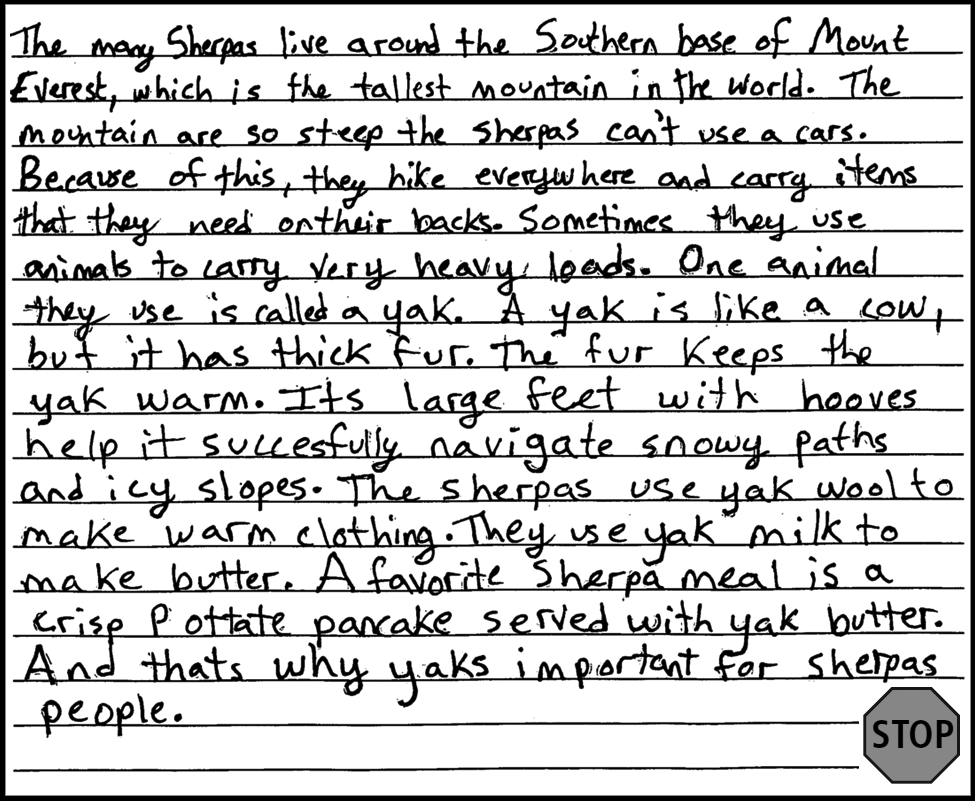 The many Sherpas live around the Southern base of Mount
Everest, which is the tallest mountain in the world. The
mountain are so steep the sherpas can't use a cars.
Because of this, they hike everywhere and carry items
that they need on their backs. Sometimes they use
animals to carry very heavy loads. One animal
they use is called a yak. A yak is like a cow,
but it has thick fur. The fur keeps the
yak warm. Its large feet with hooves
help it succesfully navigate snowy paths
and icy slopes. The sherpas use yak wool to
make warm clothing. They use yak milk to
make butter. A favorite Sherpa meal is a
crisp Pottate pancake served with yak butter.
And thats why yaks important for sherpas
people.
STOP